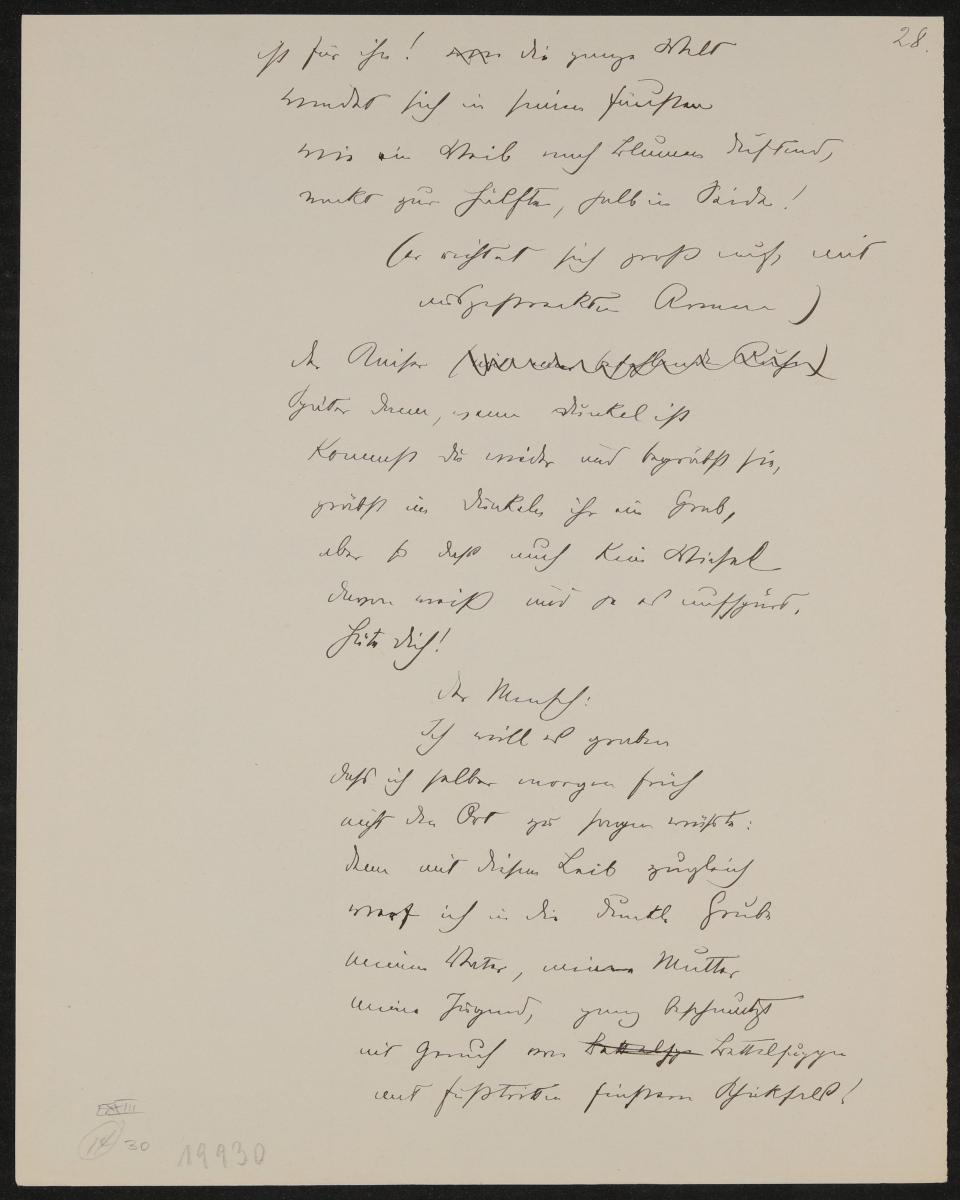 28.
ist für ihn! die ganze Welt
windet sich in seinen Fäusten
wie ein Weib nach Blumen duftend,
nackt zur Hälfte, halb in Seide!
(er richtet sich groß auf, mit
ausgestreckten Armen)
der Kaiser
Später dann, wenn dunkel ist
Kommst du wieder und begräbst sie,
gräbst im Dunkeln ihr ein Grab,
aber so daß auch kein Wiesel
davon weiß und es aufspürt.
Hüte dich!
Der Mensch:
Ich will es graben
daß ich selber morgen früh
nicht den Ort zu sagen wüßte:
denn mit diesem Leib zugleich
warf ich in die dunkle Grube
meinen Vater, meine Mutter
meine Jugend, ganz beschmutzt
mit Geruch von Bettelsuppe
mit Fußtritten finstern Schicksals!
XXIII
14 30
19930